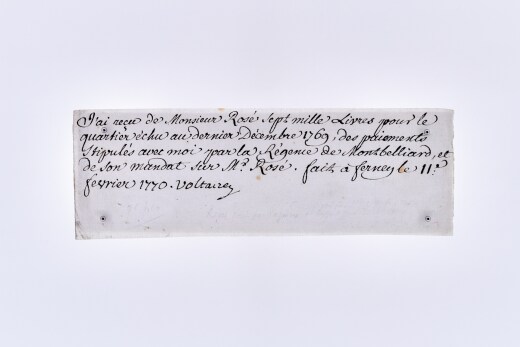 J'ai reçu de Monsieur Rosé Sept mille Livres pour le
quartier échu au dernier Décembre 1769, des paiements
Stipulés avec moi par la Régence de Montbelliard, et
de Son mandat sur Mr. Rosé. fait à ferney le 11.e
fevrier 1770. Voltaire